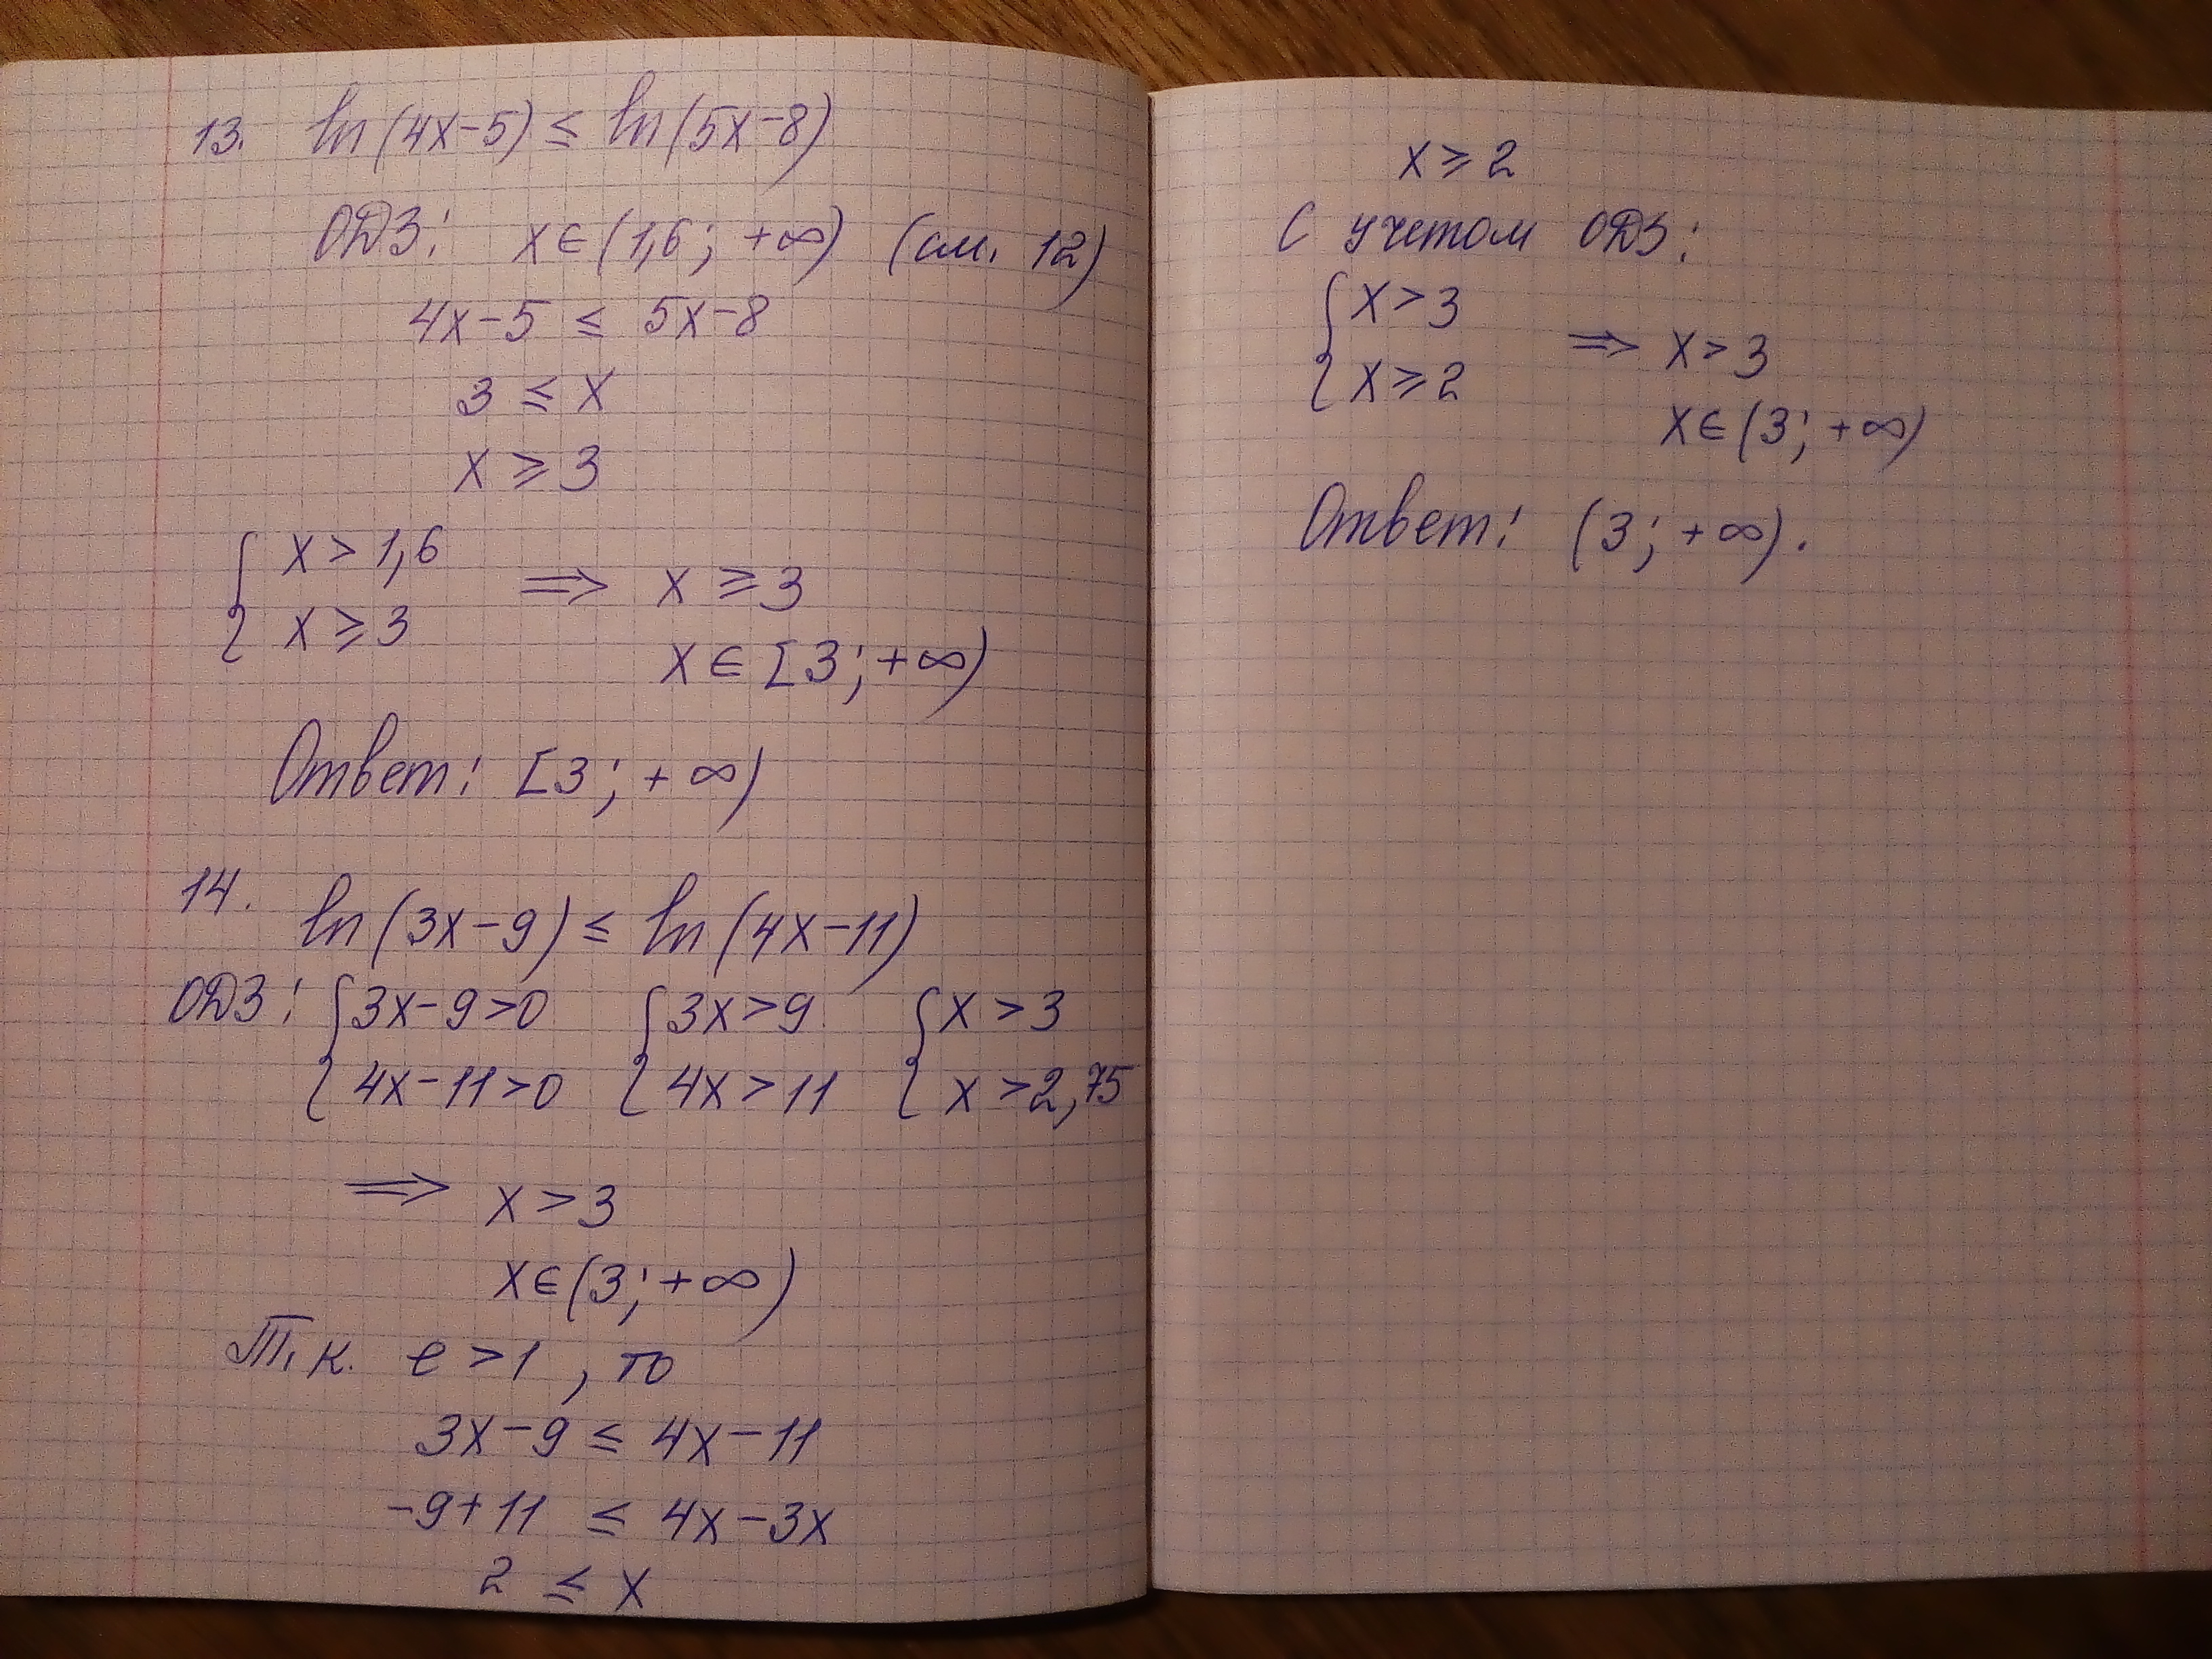 13. ln(4x-5) ≤ ln(5x-8)
ОДЗ: x∈(1,6; +∞) (см. 12)
4x-5 ≤ 5x-8
3 ≤ x
x ≥ 3
{ x > 1,6
{ x ≥ 3
⇒ x ≥ 3
x ∈ [3; +∞)
Ответ: [3; +∞)
14.
ln(3x-9) ≤ ln(4x-11)
ОДЗ: { 3x-9>0 { 3x>9 { x>3
{ 4x-11>0 { 4x>11 { x>2,75
⇒ x>3
x∈(3; +∞)
Т.к. e>1, то
3x-9 ≤ 4x-11
-9+11 ≤ 4x-3x
2 ≤ x
x ≥ 2
С учетом ОДЗ:
{ x > 3
{ x ≥ 2
⇒ x > 3
x∈(3; +∞)
Ответ: (3; +∞).